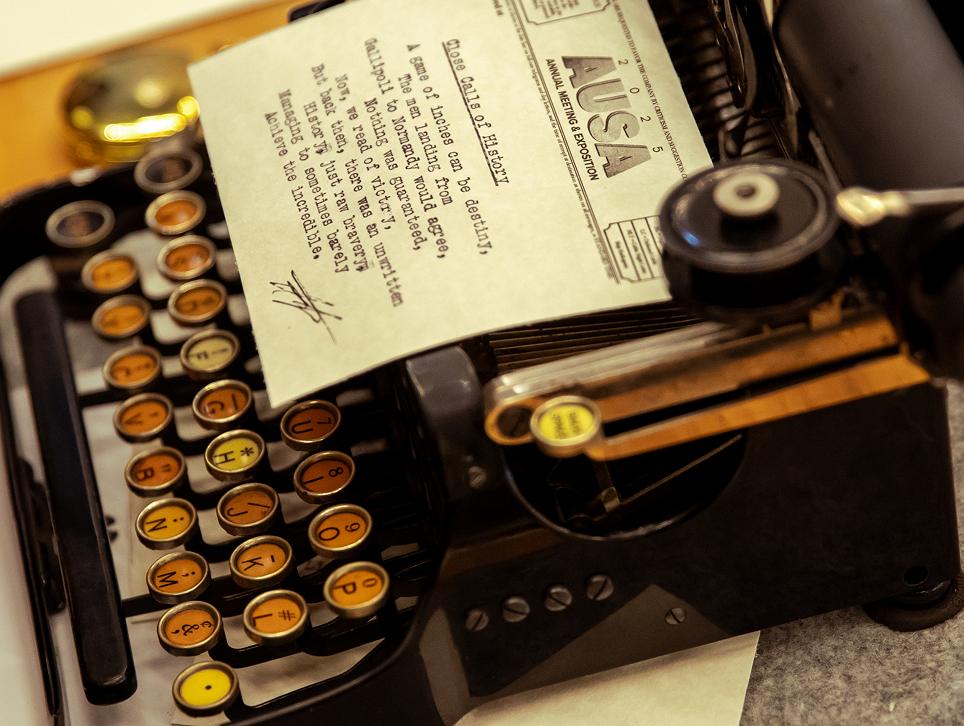 2025
AUSA
ANNUAL MEETING & EXPOSITION
Close Calls of History
A game of inches can be destiny,
The men landing from
Gallipoli to Normandy would agree,
Nothing was guaranteed,
Now, we read of victory,
But back then, there was an unwritten
History, just raw bravery,
Managing to sometimes barely
Achieve the incredible.
7 U
8 I
9 O
0 P
G
* H
/ J
- K
# L
F
V
" B
N
M
& ,
.